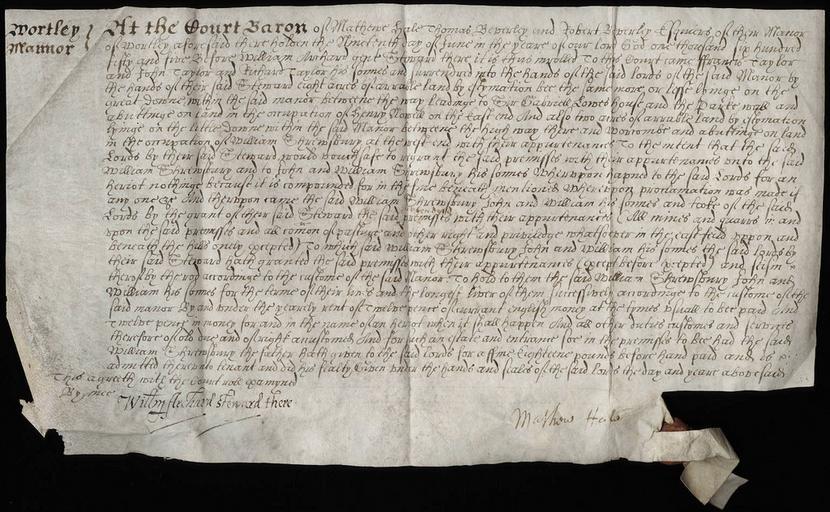 Wortley
Mannor
At the Court Baron of Mathewe Hale Thomas Beverley and Robert Beverley Esquiers of their Manor
of Wortley aforesaid there holden the Nineteenth day of June in the yeare of our lord God one thousand six hundred
fifty and five Before William gent Steward there it is thus inrolled To this Court came ffrancis Taylor
and John Taylor and Richard Taylor his sonnes and surrendred into the hands of the said lords of the said Manor by
the hands of their said Steward eight acres of arrable land by estymation bee the same more or lesse lyinge on the
great Downe within the said manor betweene the way leadinge to Sir Gabriell Lowes house and the Parke wall and
abuttinge on land in the occupation of Henry on the East end And also two acres of arrable land by estymation
lyinge on the little Downe within the said Manor betweene the high way there and and abuttinge on land
in the occupation of William Shrewsbury at the west end with their appurtenances To the intent that the said
Lords by their said Steward would vouchsafe to regrant the said premisses with their appurtenances unto the said
William Shrewsbury and to John and William Shrewsbury his sonnes Whereupon hapned to the said Lords for an
heriot nothinge because it is compounded for in the fine beneath mentioned Whereupon proclamation was made if
any one &c And thereupon came the said William Shrewsbury John and William his sonnes and tooke of the said
Lords by the grant of their said Steward the said premisses with their appurtenances All mines and quarrs in and
upon the said premisses and all comon of pasture and other right and priviledge whatsoever in the east feild uppon and
beneath the hills onely excepted) To which said William Shrewsbury John and William his sonnes the said Lords by
their said Steward hath granted the said premisses with their appurtenances (except before excepted) and seisin
thereof by the rod accordinge to the custome of the said Manor To hold to them the said William Shrewsbury John and
William his sonnes for the terme of their lives and the longest liver of them successively accordinge to the custome of the
said manor By and under the yearely rent of Twelve pence of currant english money at the tymes usuall to bee paid And
Twelve pence in money for and in the name of an heriot when it shall happen And all other duties customs and services
therefore of old one and of right accustomed And for such an estate and entrance soe in the premisses to bee had the said
William Shrewsbury the father hath given to the said Lords for a ffine Eighteene pounds before hand paid and is
admitted thereunto tenant and did his fealty Given under the hands and seales of the said lords the day and yeare abovesaid
This agreeth with the Court role examyned
By mee
Willm steward there
Mathew Hale